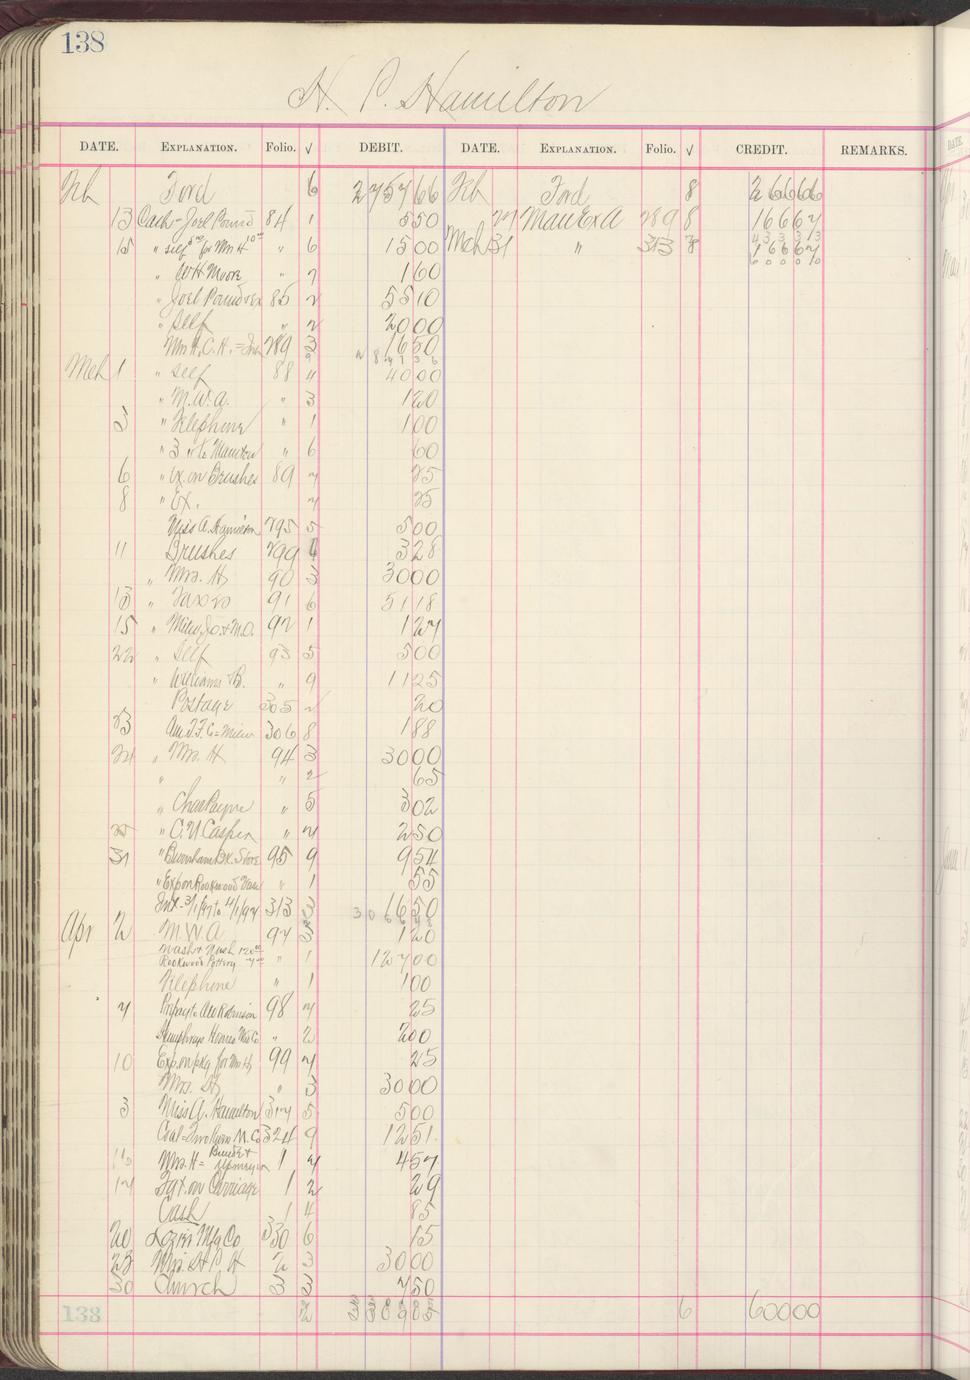 138
H. P. Hamilton
DATE. EXPLANATION. Folio. √ DEBIT. DATE. EXPLANATION. Folio. √ CREDIT. REMARKS.
Feb Ford 6 2757 66 Feb Ford 8 266 66
13 Cash - Joel Pound 84 1 5 50 27 Man Ex A 289 8 166 67
15 " self for Mrs H " 6 15 00 Mch 31 " 313 8 166 67
433 33
600 00
" W H Moore " 7 1 60
" Joel Pound ex 85 2 55 10
" self " 2 20 00
Mrs H. C. H. = Int 289 3 16 50
Mch 1 " self 88 4 40 00
" M. W. A. " 3 1 20
3 " Telephone " 1 1 00
" 3 to Manitou " 6 60
6 " Ex. on Brushes 89 7 25
8 " Ex. 7 25
Miss A. Hamilton 295 5 5 00
11 Brushes 299 4 3 28
" Mrs. H 90 3 30 00
13 " Taxes 91 6 51 18
15 " 92 1 1 27
22 " Self 93 5 5 00
" Williams B. " 9 11 25
Postage 305 2 20
23 306 8 1 88
24 " Mrs. H 94 3 30 00
" " 2 65
" Chas Payne " 5 3 02
" C. V. " 7 2 50
31 " Burnham Bk. Store 95 9 9 54
" Exp on Rookwood Vase " 1 55
Int - 3/1/97 to 4/1/97 313 3 16 50
Apr 2 M W A 97 3 1 20
Wash & Nash 120 00
Rookwood Pottery 7 00 " 1 127 00
Telephone " 1 1 00
7 98 7 25
Humphreys Homeo " 2 2 00
10 Exp. on pkg for Mrs H 99 7 25
Mrs. H " 3 30 00
3 Miss A. Hamilton 317 5 5 00
Coal = 324 9 12 51
Mrs. H = 1 7 4 57
17 Tax on Carriage 1 2 29
Cash 1 4 85
20 Mfg Co 330 6 15
28 Mrs. H P. H 2 3 30 00
30 Church 3 3 7 50
138 6 600 00